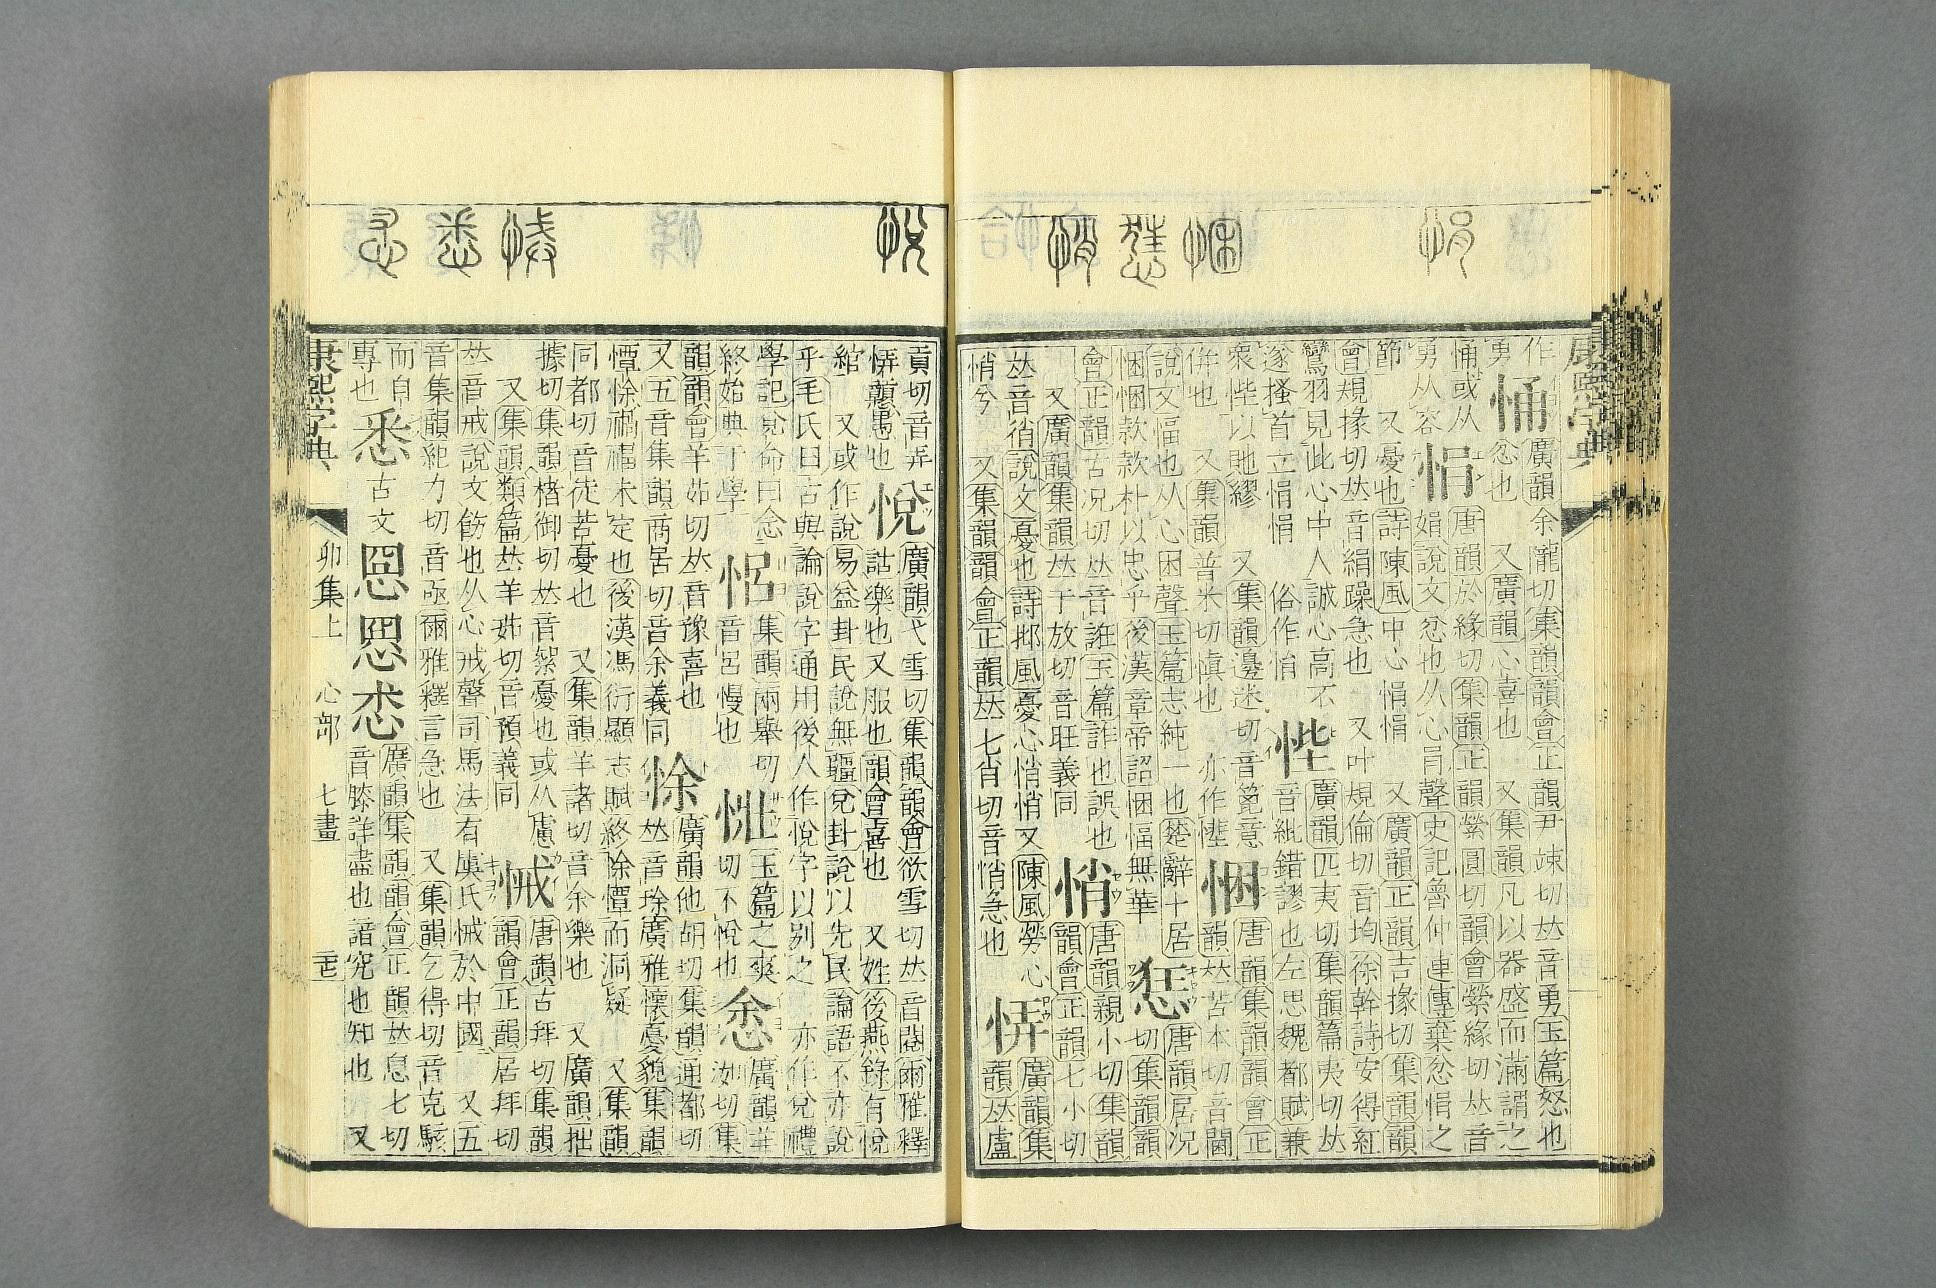 作勇
恿
廣韻余隴切集韻韻會正韻尹竦切𠀤音勇玉篇怒也
忿也 又廣韻心喜也 又集韻凡以器盛而滿謂之
恿或从
勇从容
悁
唐韻於緣切集韻正韻縈圓切韻會縈緣切𠀤音
娟說文忿也从心肙聲史記魯仲連傳棄忿悁之
節 又憂也詩陳風中心悁悁 又廣韻正韻吉掾切集韻韻
會規掾切𠀤音絹躁急也 又叶規倫切音均徐幹詩安得紅
鸞羽見此心中人誠心高不
遂搔首立悁悁 俗作悁
悂
廣韻匹夷切集韻篇夷切𠀤
音紕錯謬也左思魏都賦兼
衆悂以𧵳繆 又集韻邊迷切音篦意
倂也 又集韻普米切嗔也 亦作悂
悃
唐韻集韻韻會正
韻𠀤苦本切音閫
說文愊也从心困聲玉篇志純一也楚辭卜居
悃悃款款朴以忠乎後漢章帝詔悃愊無華
恁
唐韻居況
切集韻韻
會正韻古況切𠀤音誑玉篇詐也誤也
又廣韻集韻𠀤于放切音旺義同
悄
唐韻親小切集韻
韻會正韻七小切
𠀤音俏說文憂也詩邶風憂心悄悄又陳風勞心
悄兮 又集韻韻會正韻𠀤七肖切音悄急也
悀
廣韻集
韻𠀤盧
貢切音弄
悀戇愚也
悅
廣韻弋雪切集韻韻會欲雪切𠀤音閱爾雅釋
詁樂也又服也韻會喜也 又姓後燕錄有悅
綰 又或作說易益卦民說無疆兌卦說以先民論語不亦說
乎毛氏曰古與論說字通用後人作悅字以別之 亦作兌禮
學記兌命曰念
終始典于學
㤢
集韻兩舉切
音呂慢也
玉篇之爽
切不悅也
悆
廣韻羊
洳切集
韻韻會羊茹切𠀤音豫喜也
又五音集韻兩居切音余義同
悇
廣韻他胡切集韻通都切
𠀤音瑹廣雅懷憂貌集韻
憛悇禍福未定也後漢馮衍顯志賦終悇憛而洞疑 又集韻
同都切音徒苦憂也 又集韻羊諸切音余樂也 又廣韻抽
據切集韻楮御切𠀤音絮憂也或从慮
又集韻類篇𠀤羊茹切音預義同
悈
唐韻古拜切集韻
韻會正韻居拜切
𠀤音戒說文飭也从心戒聲司馬法有虞氏悈於中國 又五
音集韻紀力切音亟爾雅釋言急也 又集韻乞得切音克駭
而自
專也
悉
古文
恖
恩
恷
廣韻集韻韻會正韻𠀤息七切
音膝詳盡也諳究也知也 又
康熙字典
卯集上 心部 七畫